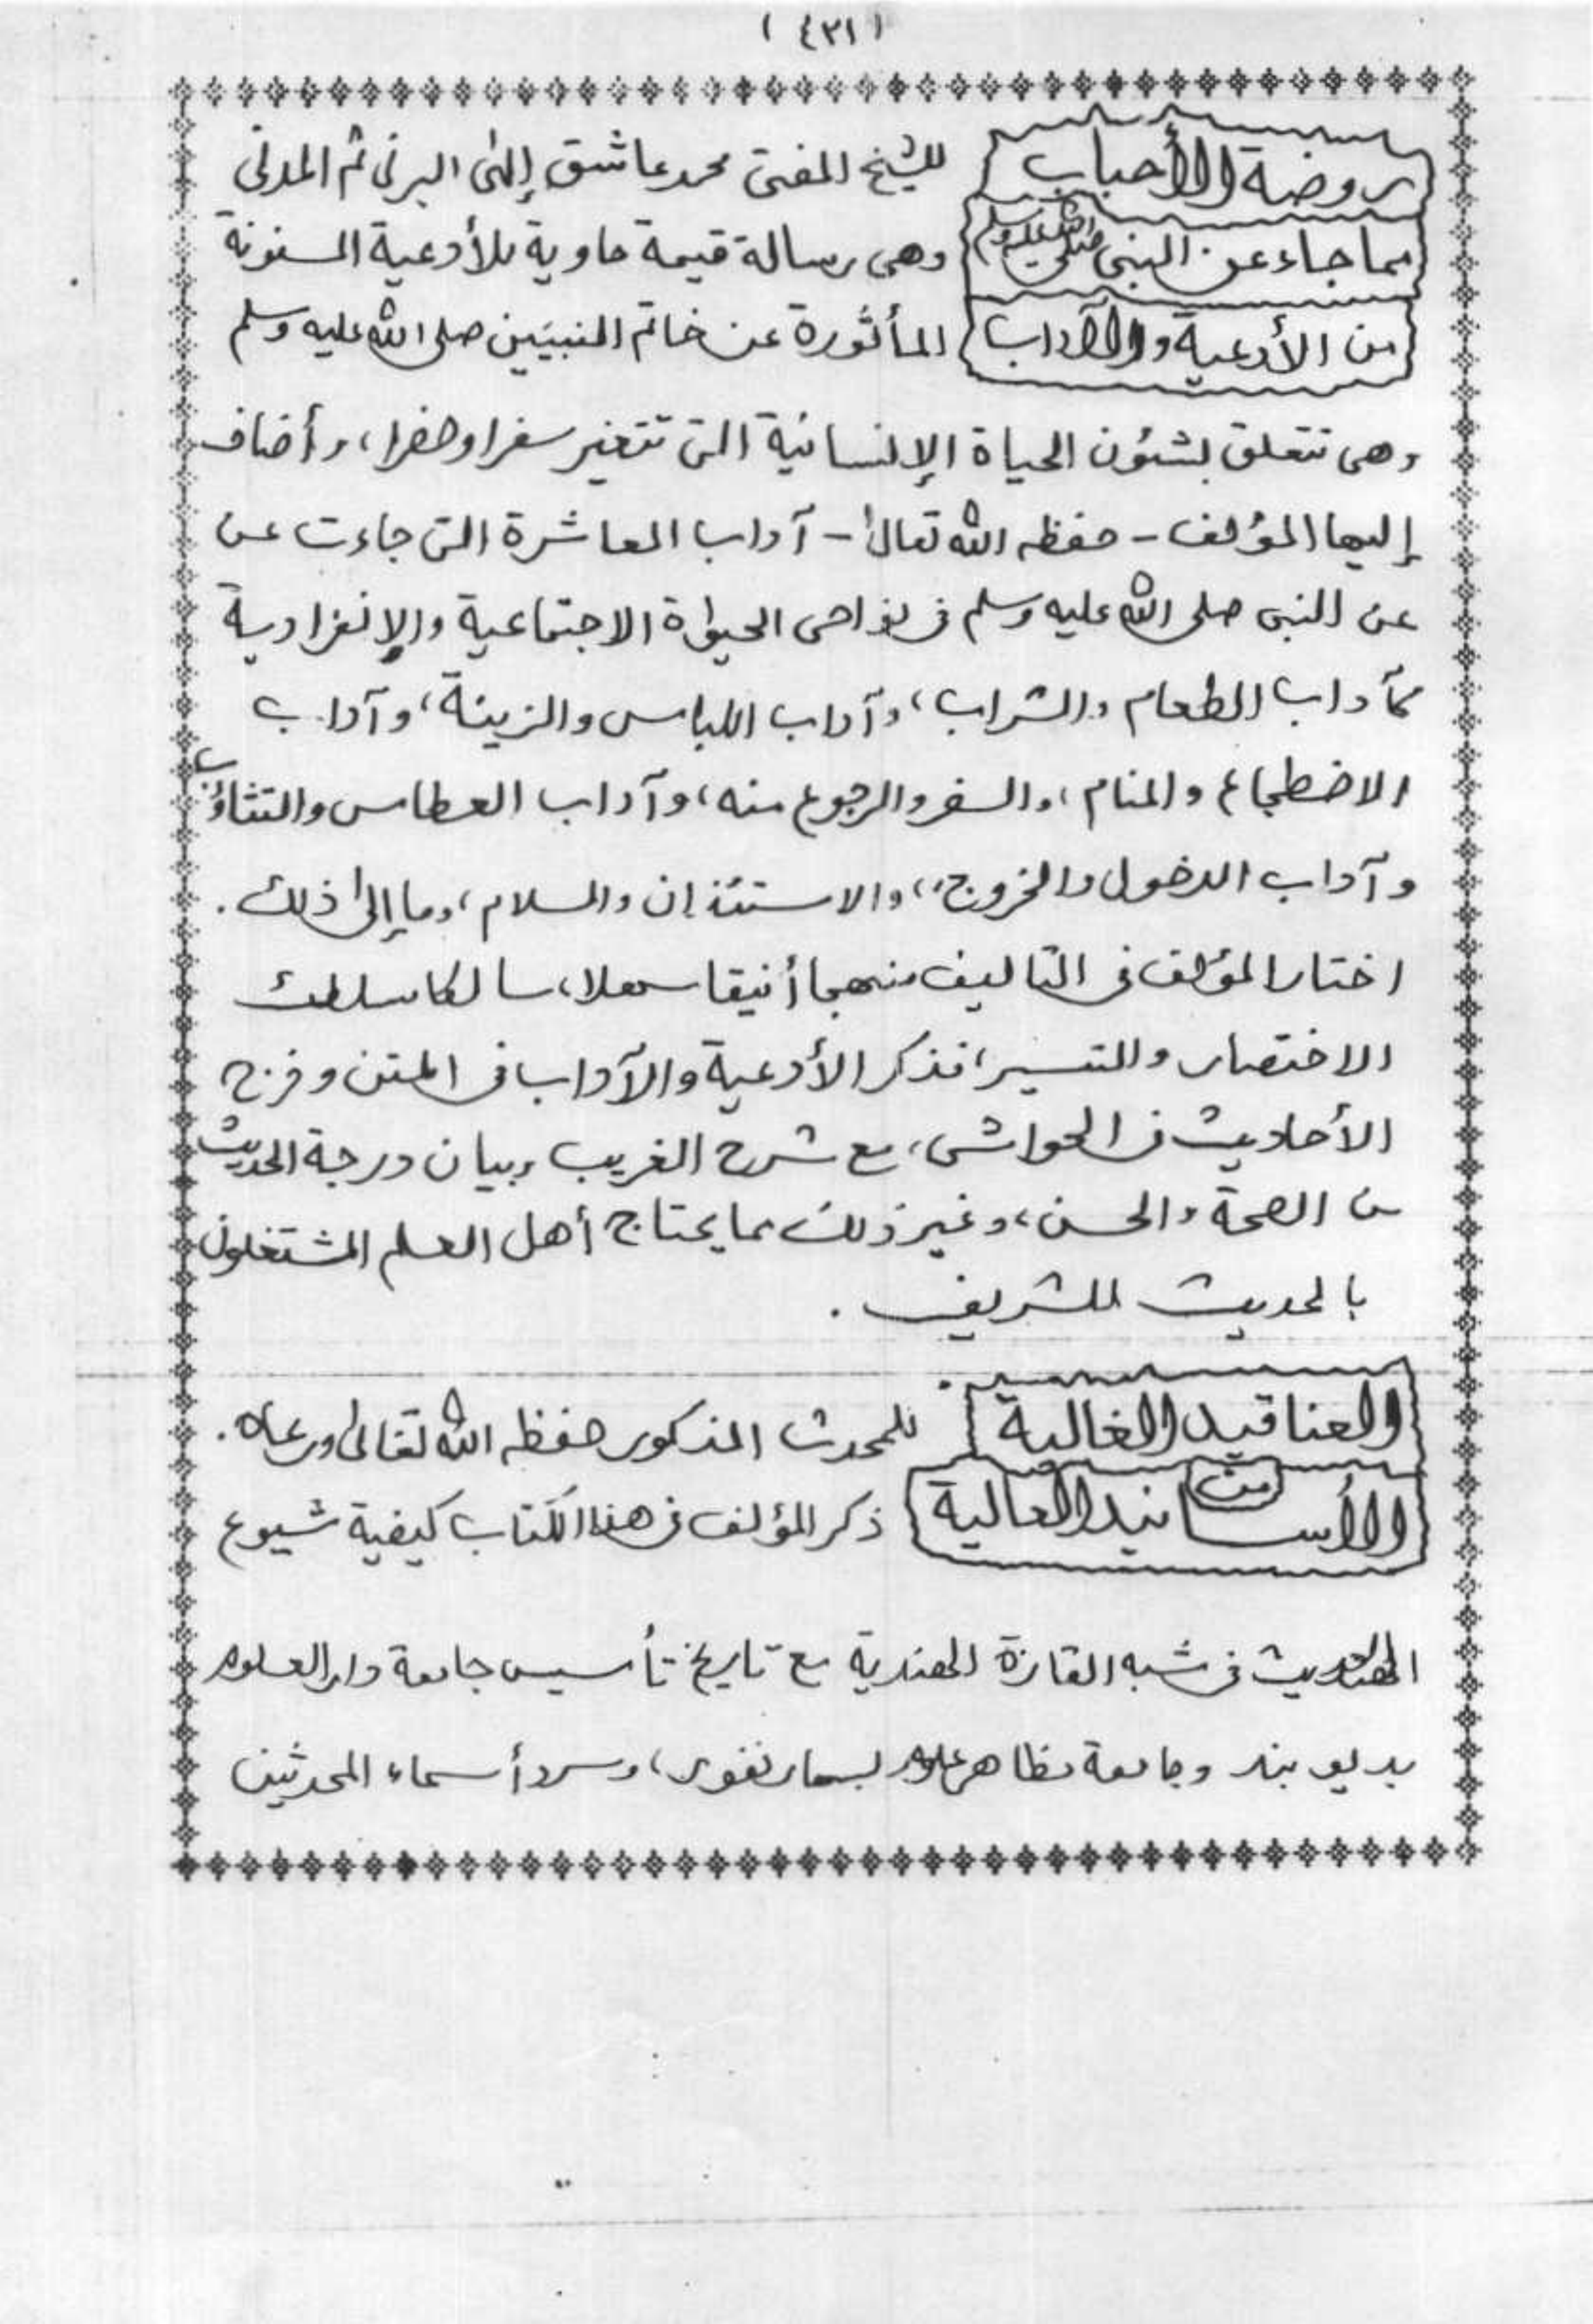 (٤٢١)
روضة الأحباب للشيخ المفتى محمد عاشق إلٰهى البرنى ثم المدنى
مما جاء عن النبى صلى الله عليه وسلم وهى رسالة قيمة حاوية للأدعية المسنونة
من الأدعية والآداب المأثورة عن خاتم النبيين صلى الله عليه وسلم
وهى تتعلق بشئون الحياة الإنسانية التى تتغير سفرا وحضرا، وأضاف
إليها المؤلف - حفظه الله تعالىٰ - آداب المعاشرة التى جاءت عن
عن النبى صلى الله عليه وسلم فى نواحى الحيوٰة الاجتماعية والإنفرادية
كآداب الطعام والشراب، وآداب اللباس والزينة، وآداب
الاضطجاع والمنام، والسفر والرجوع منه، وآداب العطاس والتثاؤب
وآداب الدخول والخروج، والاستئذان والسلام، وما إلىٰ ذلك .
اختار المؤلف فى التاليف منهجا أنيقا سهلا، سالكا مسلك
الاختصار والتيسير، فذكر الأدعية والآداب فى المتن وخرج
الأحاديث فى الحواشى، مع شرح الغريب وبيان درجة الحديث
من الصحة والحسن، وغير ذلك مما يحتاج أهل العلم المشتغلون
بالحديث الشريف .
العناقيد الغالية للمحدث المذكور حفظه الله تعالىٰ ورعاه .
من الأسانيد العالية ذكر المؤلف فى هذا الكتاب كيفية شيوع
الحديث فى شبه القارة الهندية مع تاريخ تأسيس جامعة دار العلوم
بديوبند وجامعة مظاهر علوم بسهارنفور، وسرد أسماء المحدثين